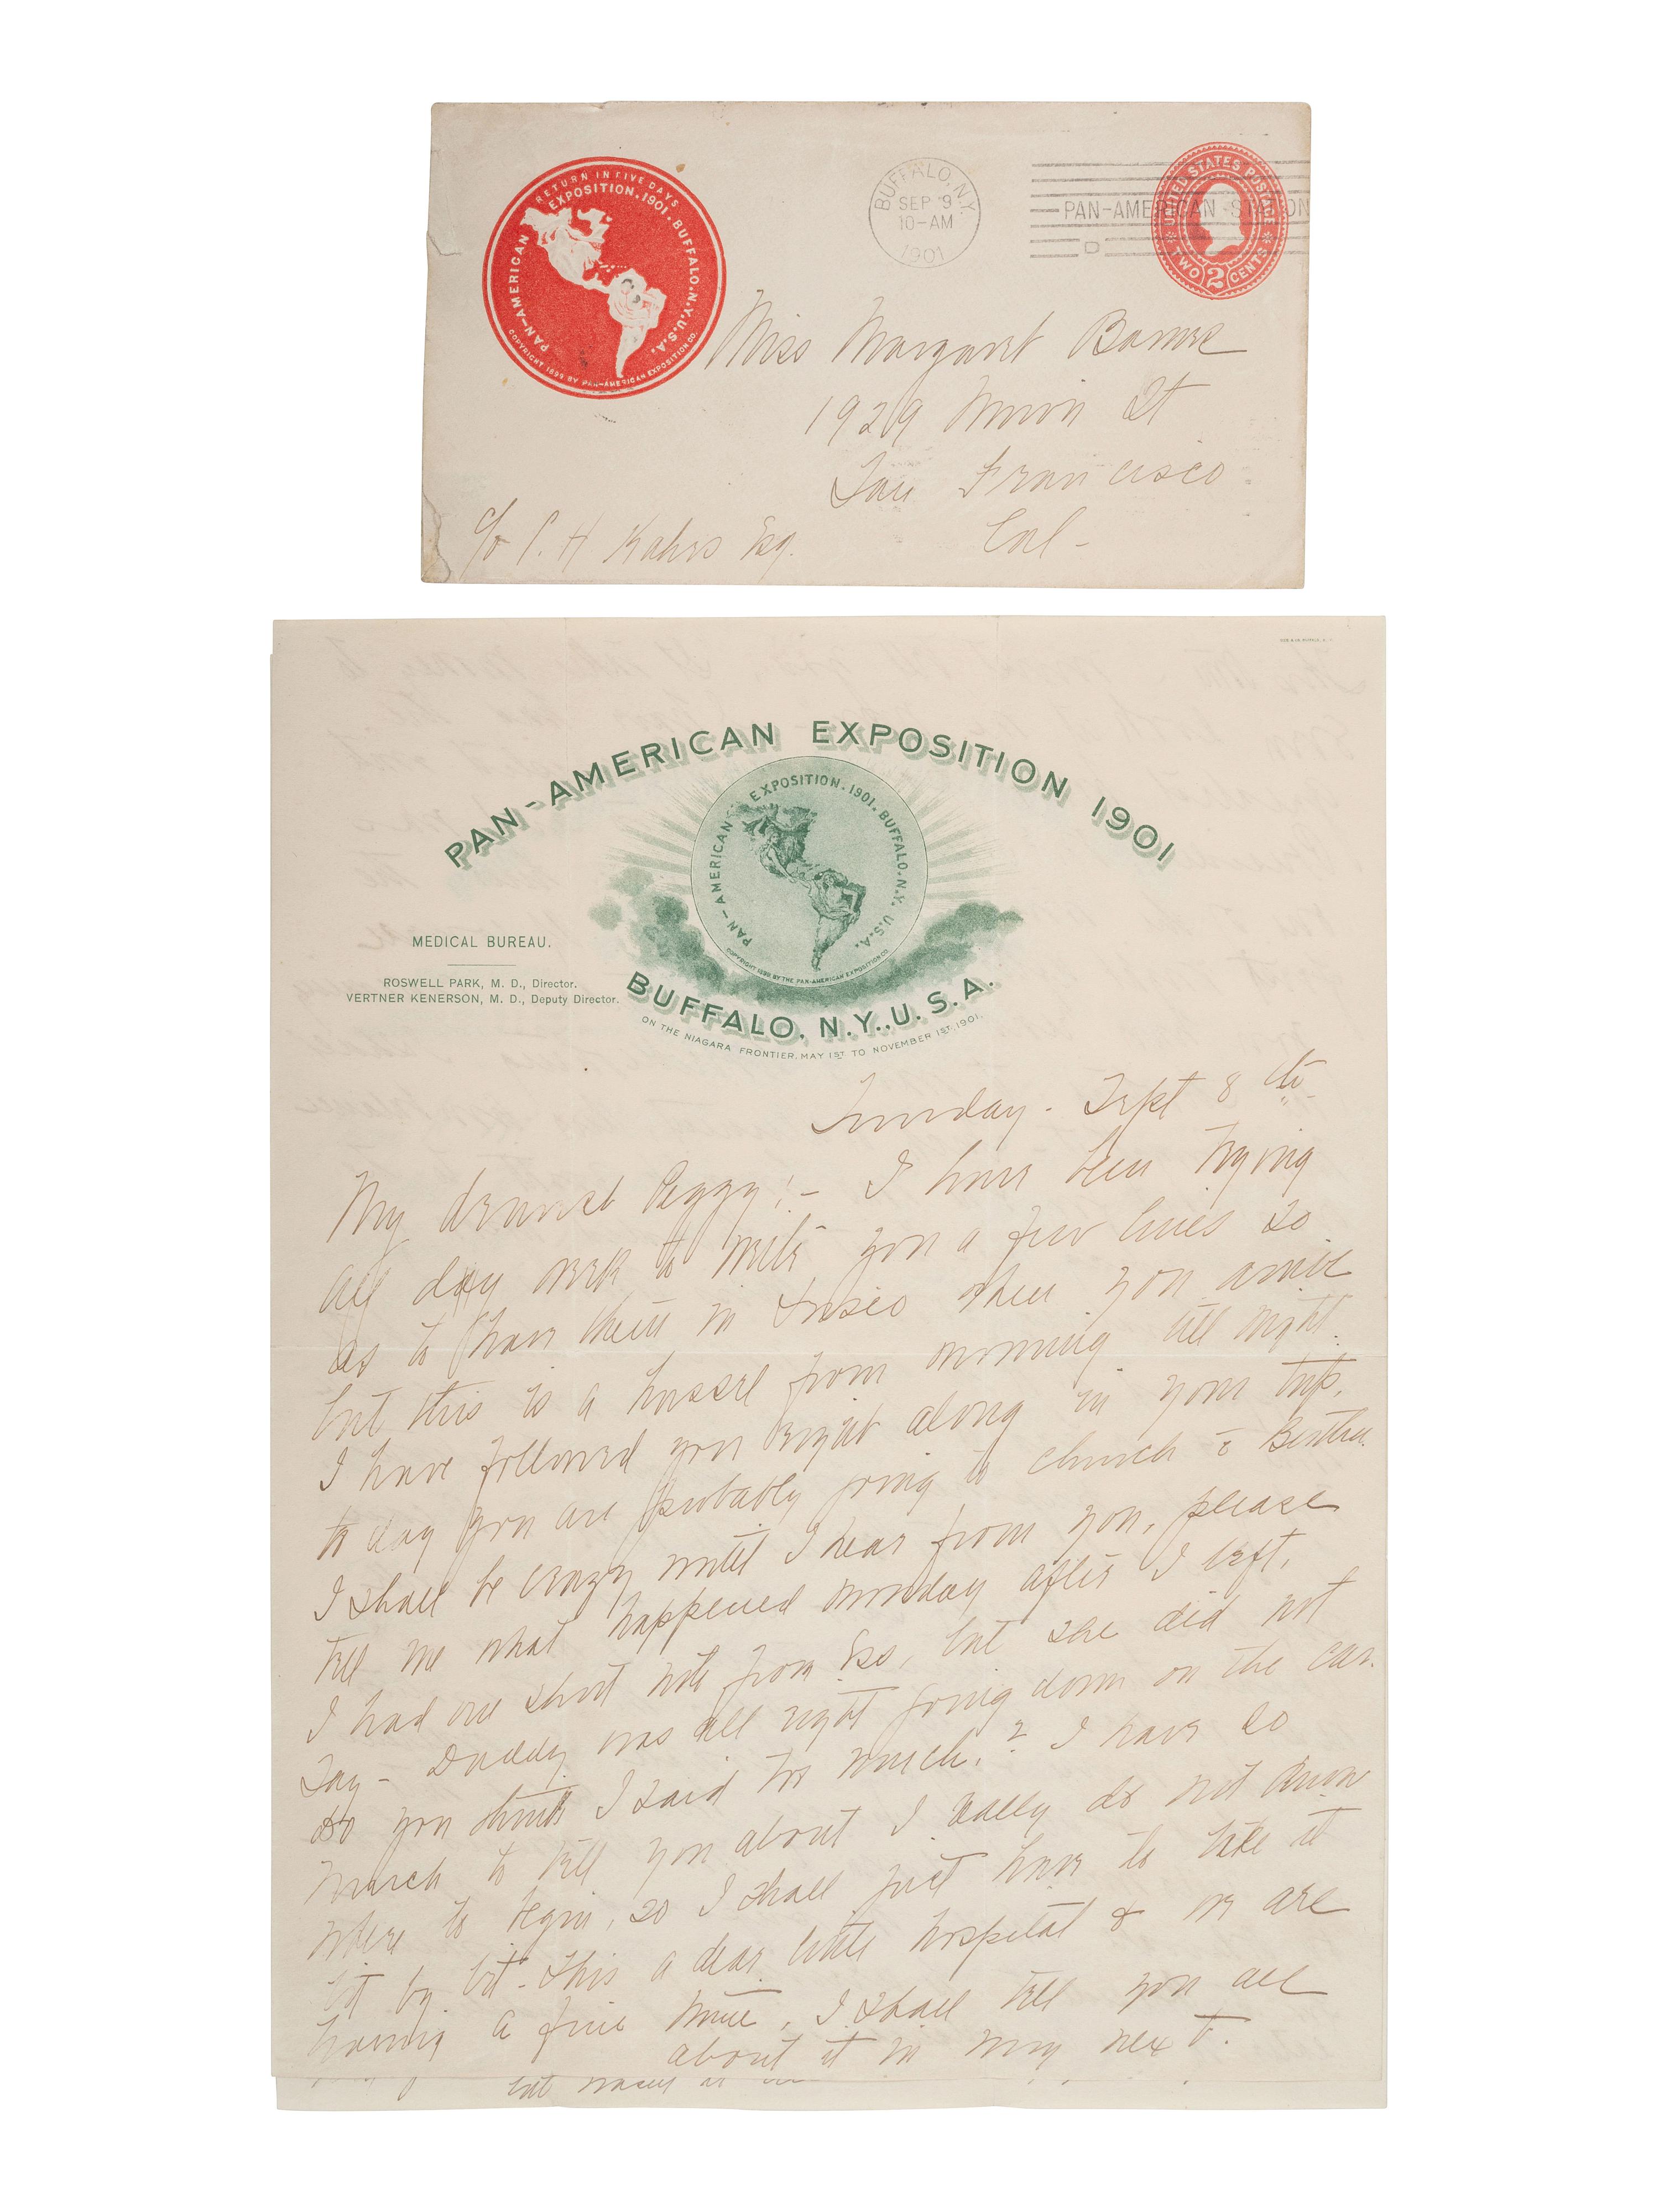 RETURN IN FIVE DAYS
PAN-AMERICAN EXPOSITION. 1901. BUFFALO. N.Y. U.S.A.
COPYRIGHT 1899 BY PAN-AMERICAN EXPOSITION CO.
BUFFALO, N.Y.
SEP 9
10-AM
1901
PAN-AMERICAN STATION
D
UNITED STATES POSTAGE
TWO 2 CENTS
Miss Margaret
1929 Union St
San Francisco
Cal -
c/o P. H Kahrs Esq.
PAN-AMERICAN EXPOSITION 1901
PAN-AMERICAN EXPOSITION. 1901. BUFFALO. N.Y. U.S.A.
COPYRIGHT 1899 BY THE PAN-AMERICAN EXPOSITION CO.
MEDICAL BUREAU.
ROSWELL PARK, M. D., Director.
VERTNER KENERSON, M. D., Deputy Director.
BUFFALO, N.Y., U.S.A.
ON THE NIAGARA FRONTIER, MAY 1ST TO NOVEMBER 1ST, 1901.
Sunday - Sept 8th
My dearest Peggy! - I have been trying
all day week to write you a few lines so
as to have them in Frisco when you arrive
but this is a hussel from morning till night.
I have followed you right along in your trip.
to day you are probably going to church c̄ Bertha.
I shall be crazy until I hear from you, please
tell me what happened monday after I left.
I had one short note from Ess, but she did not
Say - Daddy was all right going down on the car.
do you think I said too much.? I have so
much to tell you about I really do not know
where to begin, so I shall just have to take it
bit by bit. This a dear little hospital & we are
having a fine time, I shall tell you all
about it in my next.